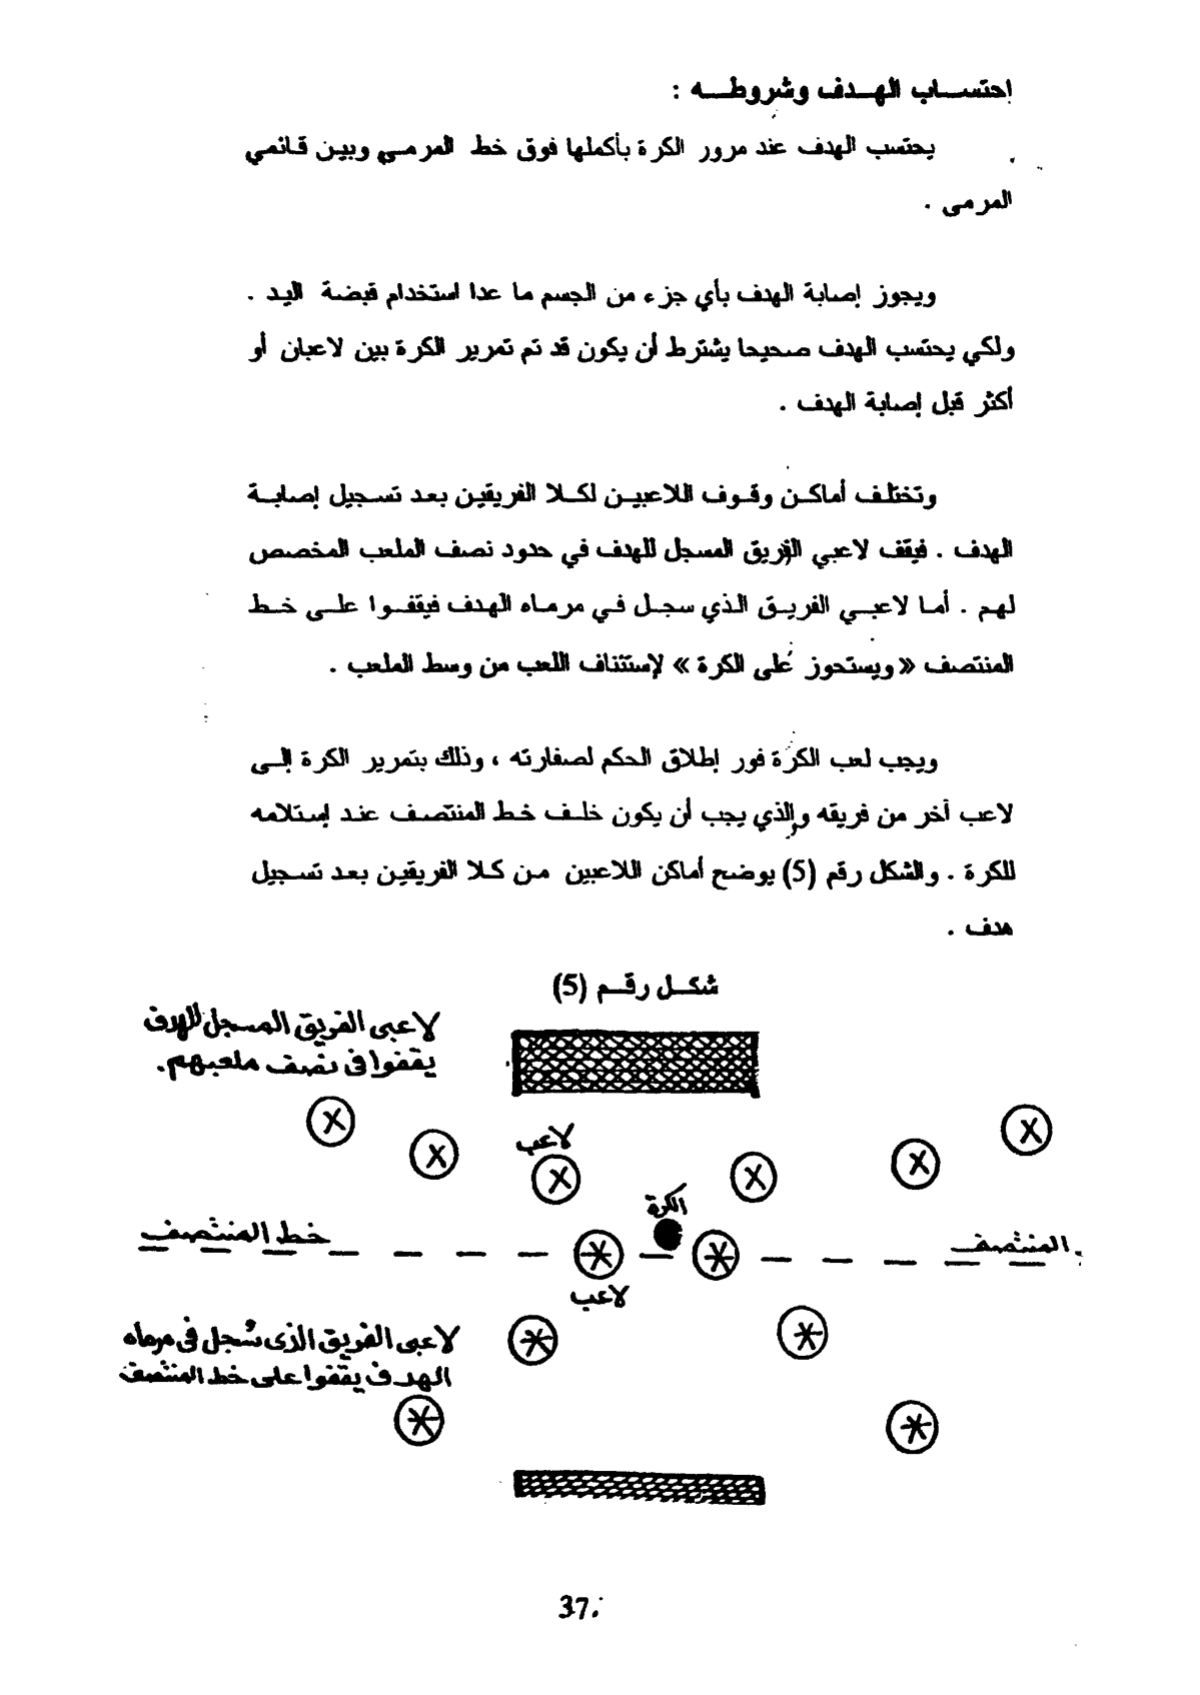 إحتساب الهدف وشروطه :
يحتسب الهدف عند مرور الكرة بأكملها فوق خط المرمي وبين قائمي
المرمى .
ويجوز إصابة الهدف بأي جزء من الجسم ما عدا استخدام قبضة اليد .
ولكي يحتسب الهدف صحيحا يشترط أن يكون قد تم تمرير الكرة بين لاعبان أو
أكثر قبل إصابة الهدف .
وتختلف أماكن وقوف اللاعبين لكلا الفريقين بعد تسجيل إصابة
الهدف . فيقف لاعبي الفريق المسجل للهدف في حدود نصف الملعب المخصص
لهم . أما لاعبي الفريق الذي سجل في مرماه الهدف فيقفوا على خط
المنتصف « ويستحوز على الكرة » لإستئناف اللعب من وسط الملعب .
ويجب لعب الكرة فور إطلاق الحكم لصفارته ، وذلك بتمرير الكرة إلى
لاعب أخر من فريقه والذي يجب أن يكون خلف خط المنتصف عند إستلامه
للكرة . والشكل رقم (5) يوضح أماكن اللاعبين من كلا الفريقين بعد تسجيل
هدف .
شكل رقم (5)
لاعبى الفريق المسجل للهدف
يقفوا فى نصف ملعبهم.
لاعب
الكرة
خط المنتصف
المنتصف
لاعب
لاعبى الفريق الذى سُجل فى مرماه
الهدف يقفوا على خط المنتصف
37